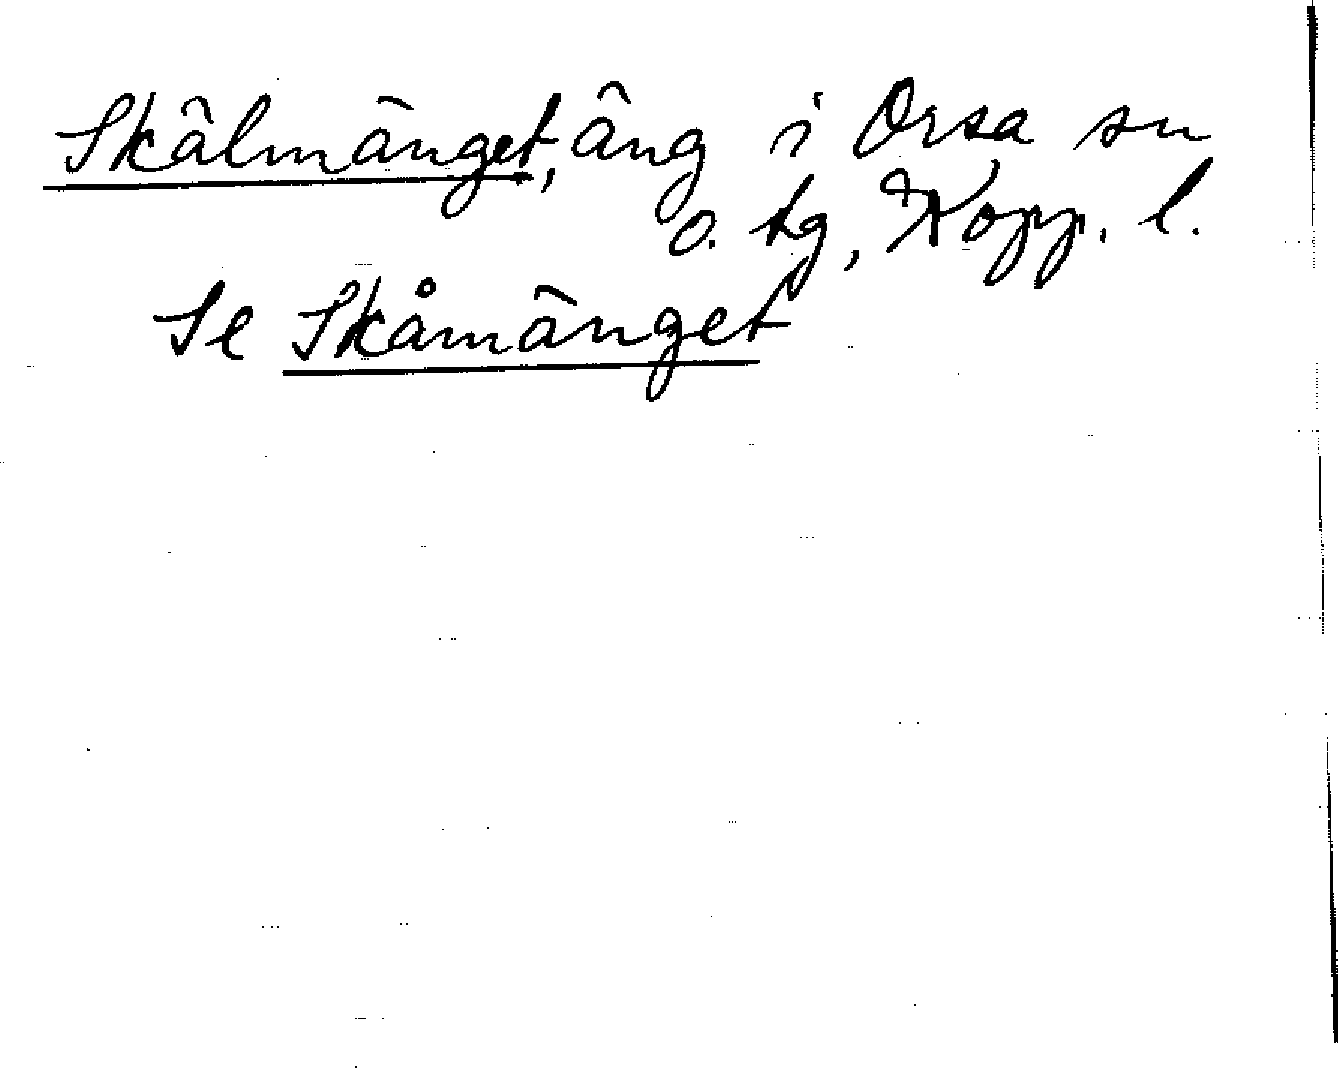 Skälmänget, äng i Orsa sn
o. tg, Kopp. l.
Se Skåmänget